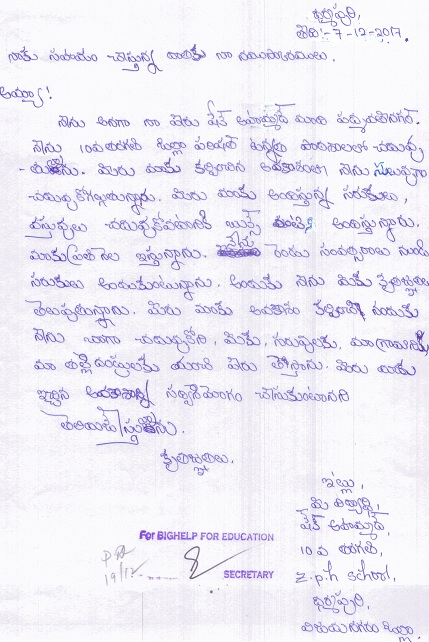 ధర్మపురి,
తేది:- 7-12-2017.
నాకు సహాయం చేస్తున్న వారికి నా నమస్కారములు.
అయ్యా!
నేను అనగా నా పేరు షేక్ అహమ్మద్ మాది
నేను 10వ తరగతి జిల్లా పరిషత్ ఉన్నత పాఠశాలలో చదువు
-తున్నాను. మీరు మాకు కల్పించిన అవకాశంగా నేను సులువుగా
చదువుకోగల్గుతున్నాను. మీరు మాకు అందిస్తున్న సరుకులు,
వస్తువులు చదువుకోవడానికి అందిస్తున్నారు.
మాకు ప్రతి నెల ఇస్తున్నారు. నేను రెండు సంవత్సరాలు నుండి
సరుకులు అందుకుంటున్నాను. అందుకు నేను మీకు కృతజ్ఞతలు
తెలుపుతున్నాను. మీరు మాకు అవకాశం కల్పించినందుకు
నేను బాగా చదువుకోని, మీకు, గురువులకు, మా గ్రామానికి
మా తల్లిదండ్రులకు మంచి పేరు తెస్తాను. మీరు నాకు
ఇచ్చిన అవకాశాన్ని సద్వినియోగం చేసుకుంటానని
తెలియజేస్తున్నాను.
కృతజ్ఞతలు.
ఇట్లు,
మీ విద్యార్థి,
షేక్ అహమ్మద్,
10 వ తరగతి,
z.p.h school,
ధర్మపురి,
విజయనగరం జిల్లా.
For BIGHELP FOR EDUCATION
19/12
SECRETARY